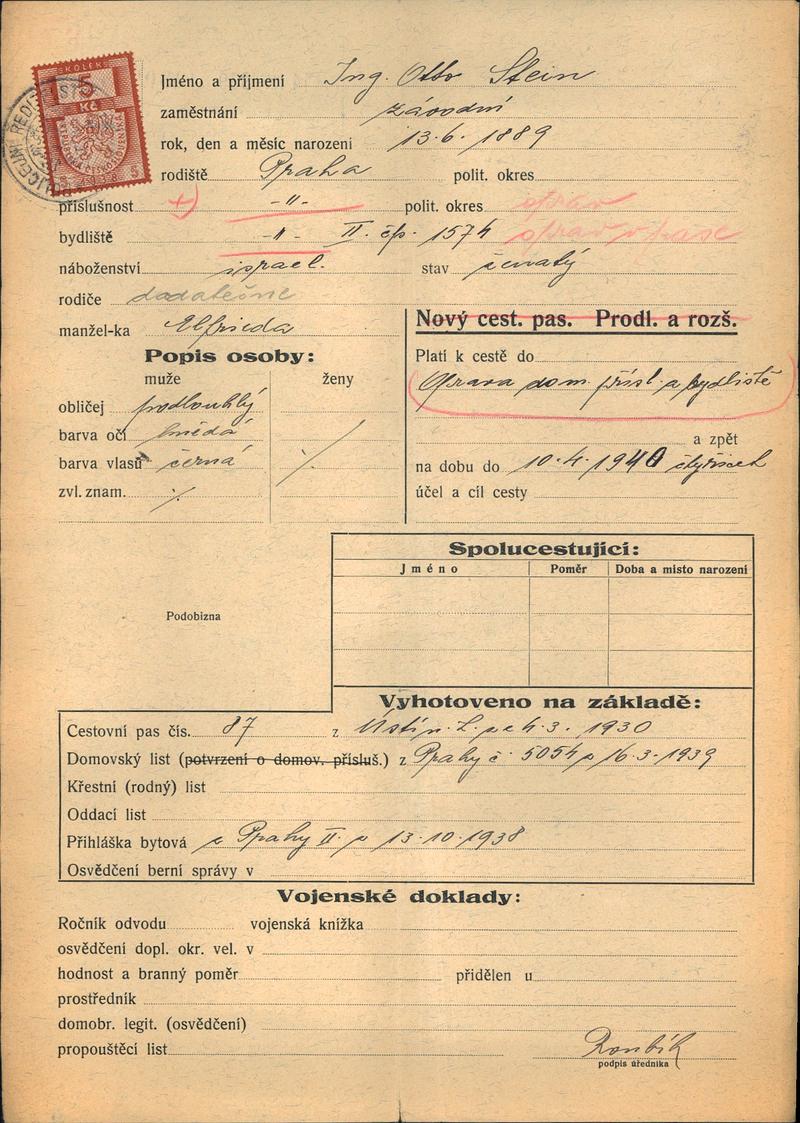 KOLEK
5
Kč
5 5
Jméno a příjmení Ing. Otto Stein
zaměstnání závodní
rok, den a měsíc narození 13.6.1889
rodiště Praha polit. okres
příslušnost +) -"- polit. okres oprav
bydliště -"- II. čp. 1574 oprav v pase
náboženství israel. stav ženatý
rodiče dodatečně
manžel-ka Elfrieda
Nový cest. pas. Prodl. a rozš.
Popis osoby:
muže ženy
obličej podlouhlý
barva očí hnědá
barva vlasů černá ./.
zvl. znam. ./.
Platí k cestě do
Oprava dom. přísl. a bydliště
a zpět
na dobu do 10.4.1940 čtyřicet
účel a cíl cesty
Spolucestující:
Jméno Poměr Doba a místo narození
Podobizna
Vyhotoveno na základě:
Cestovní pas čís. 87 z Ústí n. L. ze 4.3.1930
Domovský list (potvrzení o domov. přísluš.) z Prahy č. 5054 z 16.3.1939
Křestní (rodný) list
Oddací list
Přihláška bytová z Prahy II. z 13.10.1938
Osvědčení berní správy v
Vojenské doklady:
Ročník odvodu vojenská knížka
osvědčení dopl. okr. vel. v
hodnost a branný poměr přidělen u
prostředník
domobr. legit. (osvědčení)
propouštěcí list
podpis úředníka